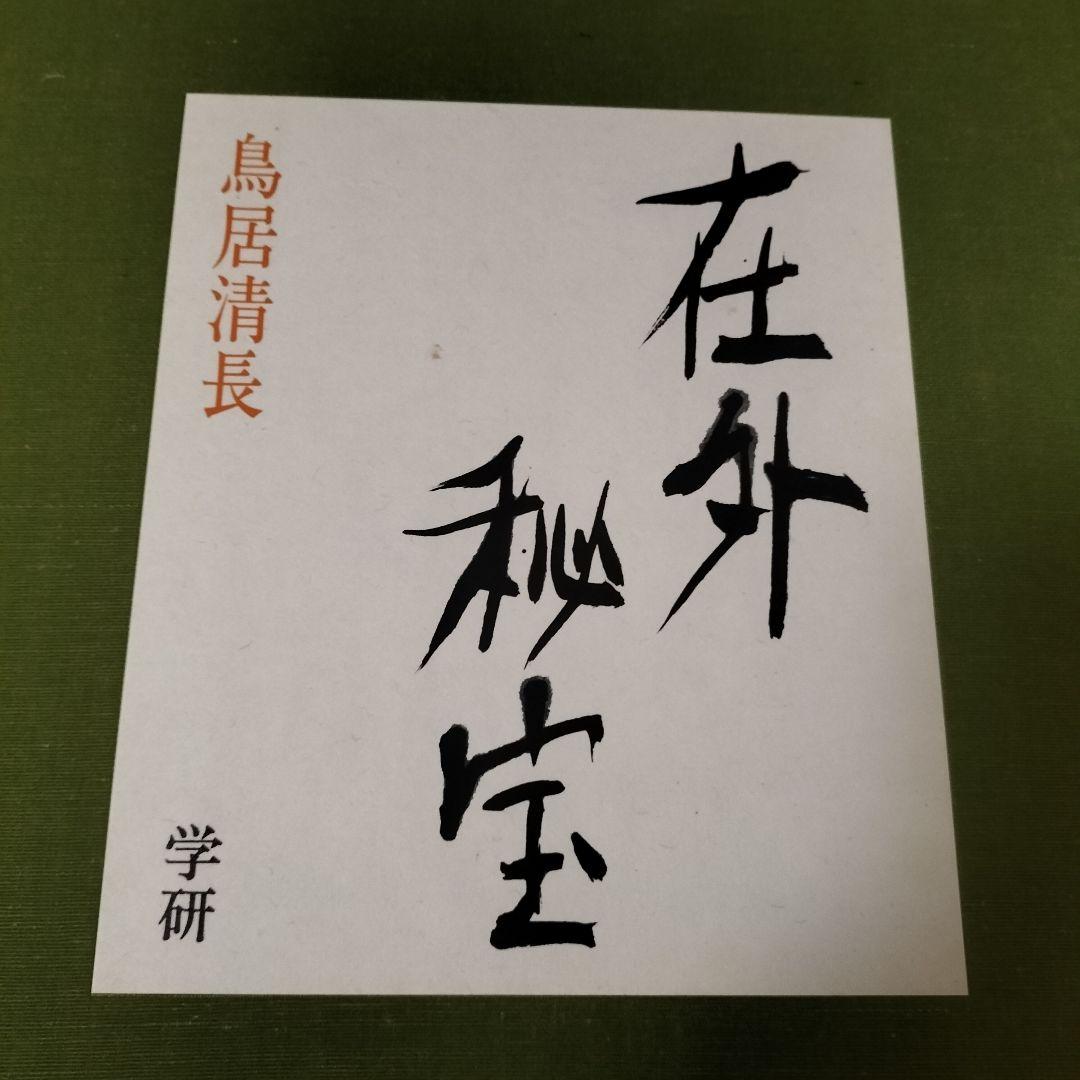 在外
秘宝
鳥居清長
学研